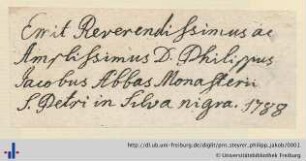 Emit Reverendissimus ac
Amplissimus D. Philippus
Jacobus Abbas Monasterii
S. Petri in Silva nigra. 1788
http://dl.ub.uni-freiburg.de/diglit/pro_steyrer_philipp_jakob/0001
© Universitätsbibliothek Freiburg